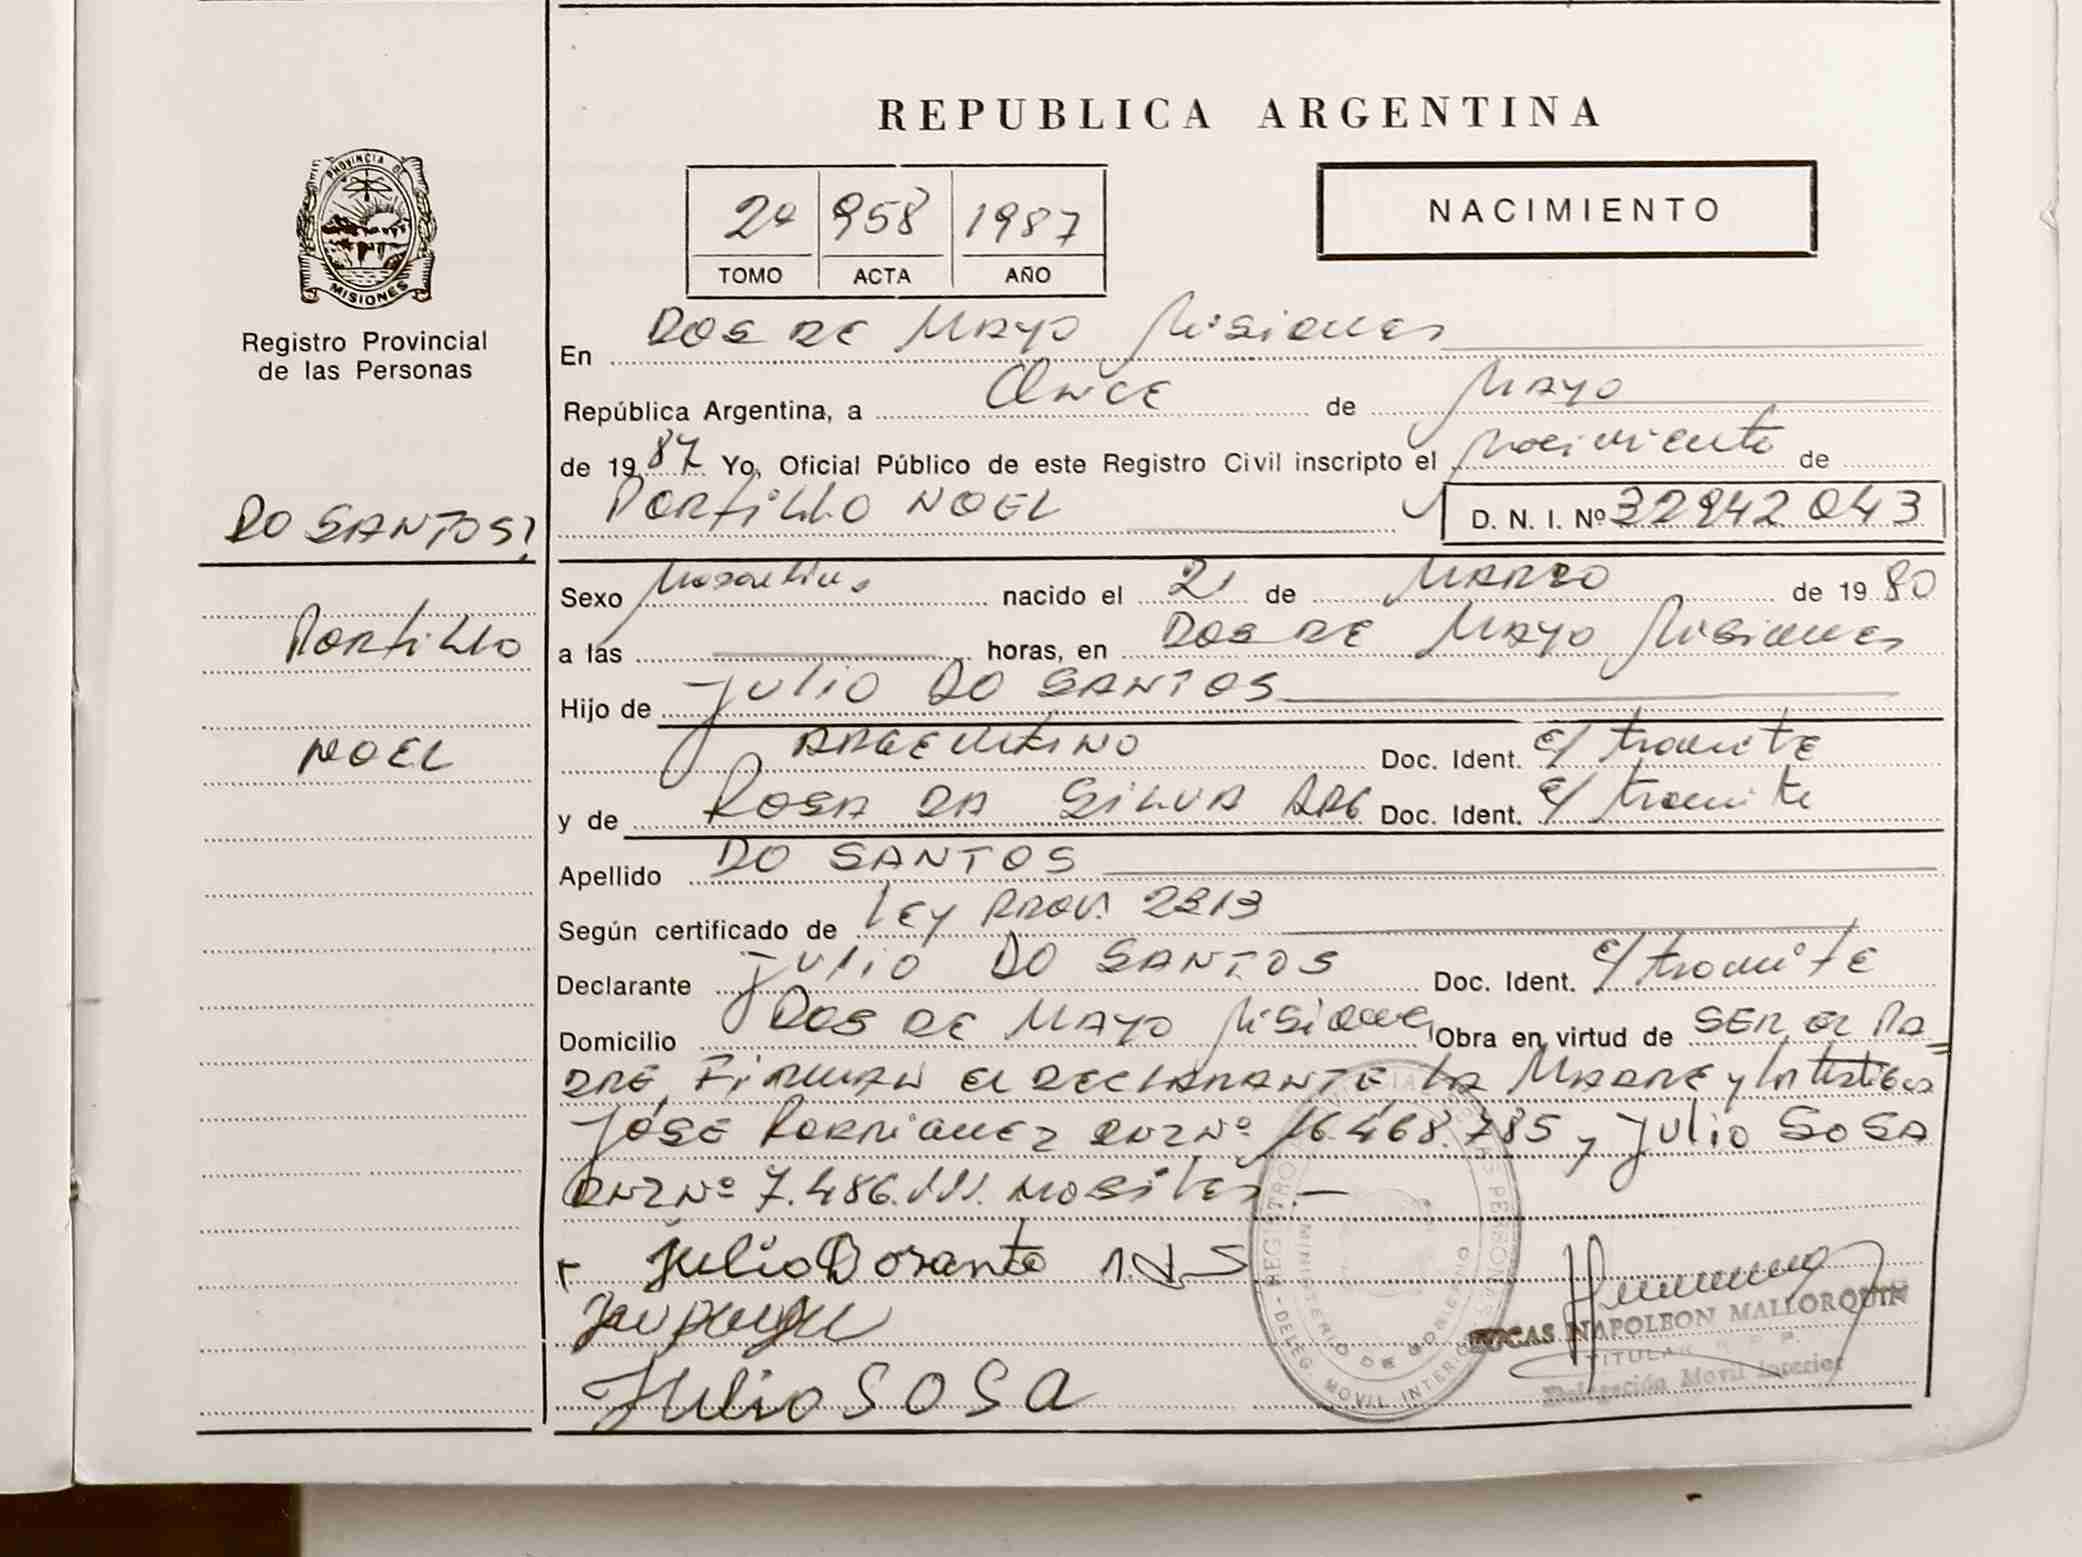 REPUBLICA ARGENTINA
PROVINCIA DE
MISIONES
Registro Provincial
de las Personas
2º 958 1987
TOMO ACTA AÑO
NACIMIENTO
En DOS DE MAYO Misiones
República Argentina, a ONCE de MAYO
de 1987 Yo, Oficial Público de este Registro Civil inscripto el Nacimiento de
PORTILLO NOEL
D. N. I. Nº 32942043
DO SANTOS,
PORTILLO
NOEL
Sexo Masculino nacido el 21 de MARZO de 1980
a las horas, en DOS DE MAYO Misiones
Hijo de JULIO DO SANTOS
ARGENTINO Doc. Ident. e/ tramite
y de ROSA DA SILVA ARG Doc. Ident. e/ tramite
Apellido DO SANTOS
Según certificado de LEY PROV. 2313
Declarante JULIO DO SANTOS Doc. Ident. e/ tramite
Domicilio DOS DE MAYO Misiones Obra en virtud de SER EL PA
DRE, FIRMAN EL DECLARANTE LA MADRE y los testigos
JOSE RODRIGUEZ DNI Nº 16.468.785 y JULIO SOSA
DNI Nº 7.486.111.
Julio Dosanto
JULIO SOSA
REGISTRO PROVINCIAL DE LAS PERSONAS - DELEG. MOVIL INTERIOR
MINISTERIO DE GOBIERNO
LUCAS NAPOLEON MALLORQUIN
TITULAR
Delegación Movil Interior